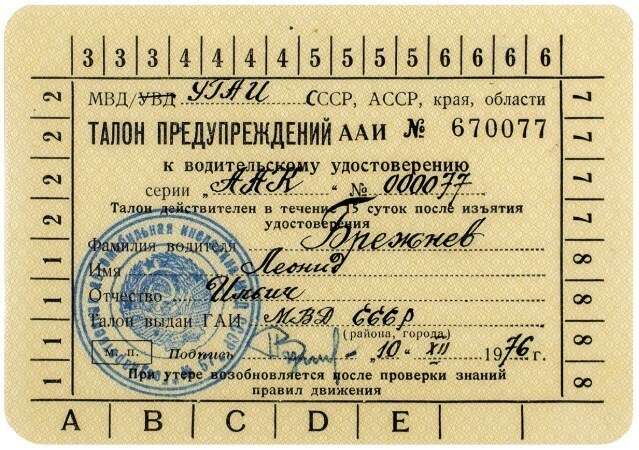 3 3 3 3 4 4 4 4 5 5 5 5 6 6 6 6
2 2 2 2 1 1 1 1
7 7 7 7 8 8 8 8
МВД/УВД УГАИ СССР, АССР, края, области
ТАЛОН ПРЕДУПРЕЖДЕНИЙ ААИ № 670077
к водительскому удостоверению
серии „ААК“ № 000077
Талон действителен в течение 15 суток после изъятия
удостоверения
Фамилия водителя Брежнев
Имя Леонид
Отчество Ильич
Талон выдан ГАИ МВД СССР
(района, города)
м. п. Подпись „10“ XII 1976 г.
При утере возобновляется после проверки знаний
правил движения
A B C D E